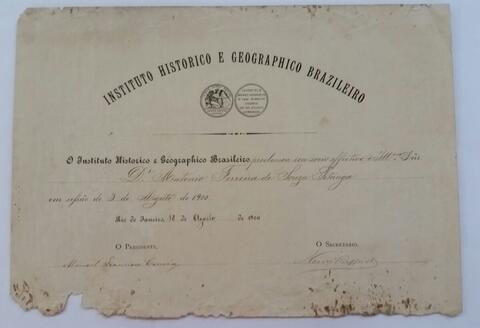 INSTITUTO HISTORICO E GEOGRAPHICO BRAZILEIRO
O Instituto Historico e Geographico Brazileiro, proclama seu socio effectivo o Illmo. Snr
Dr. Antonio Ferreira de Souza Pitanga
em sessão de 3 de Agosto de 1900
Rio de Janeiro, de Agosto de 1900
O PRESIDENTE, O SECRETARIO,
Manoel Francisco Correia